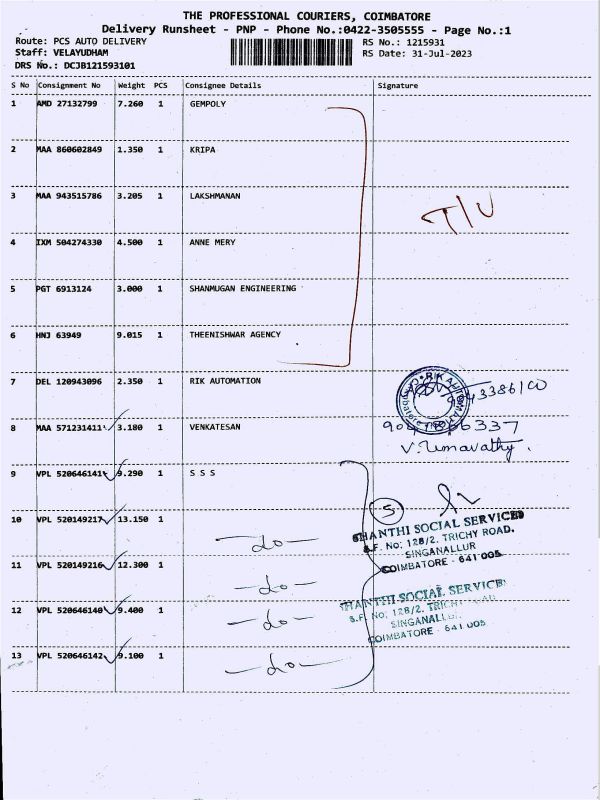 THE PROFESSIONAL COURIERS, COIMBATORE
Delivery Runsheet - PNP - Phone No.:0422-3505555 - Page No.:1
Route: PCS AUTO DELIVERY RS No.: 1215931
Staff: VELAYUDHAM RS Date: 31-Jul-2023
DRS No.: DCJB121593101
S No Consignment No Weight PCS Consignee Details Signature
1 AMD 27132799 7.260 1 GEMPOLY
2 MAA 860602849 1.350 1 KRIPA
3 MAA 943515786 3.205 1 LAKSHMANAN
T/U
4 IXM 504274330 4.500 1 ANNE MERY
5 PGT 6913124 3.000 1 SHANMUGAN ENGINEERING
6 HNJ 63949 9.015 1 THEENISHWAR AGENCY
7 DEL 120943096 2.350 1 RIK AUTOMATION
8 MAA 571231411 3.180 1 VENKATESAN
V. Umavathy.
9 VPL 520646141 9.290 1 S S S
5
10 VPL 520149217 13.150 1
SHANTHI SOCIAL SERVICES
S.F. No: 128/2, TRICHY ROAD,
-do-
SINGANALLUR
11 VPL 520149216 12.300 1
COIMBATORE - 641 005
-do-
SHANTHI SOCIAL SERVICES
12 VPL 520646140 9.400 1
S.F. No: 128/2, TRICHY ROAD
-do-
SINGANALLUR
COIMBATORE - 641 005
13 VPL 520646142 9.100 1
-do-